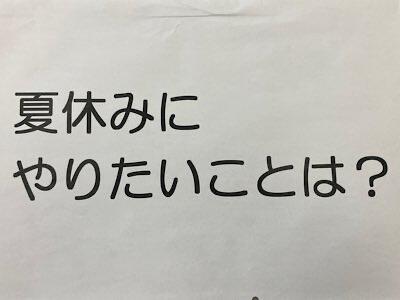 夏休みに
やりたいことは？